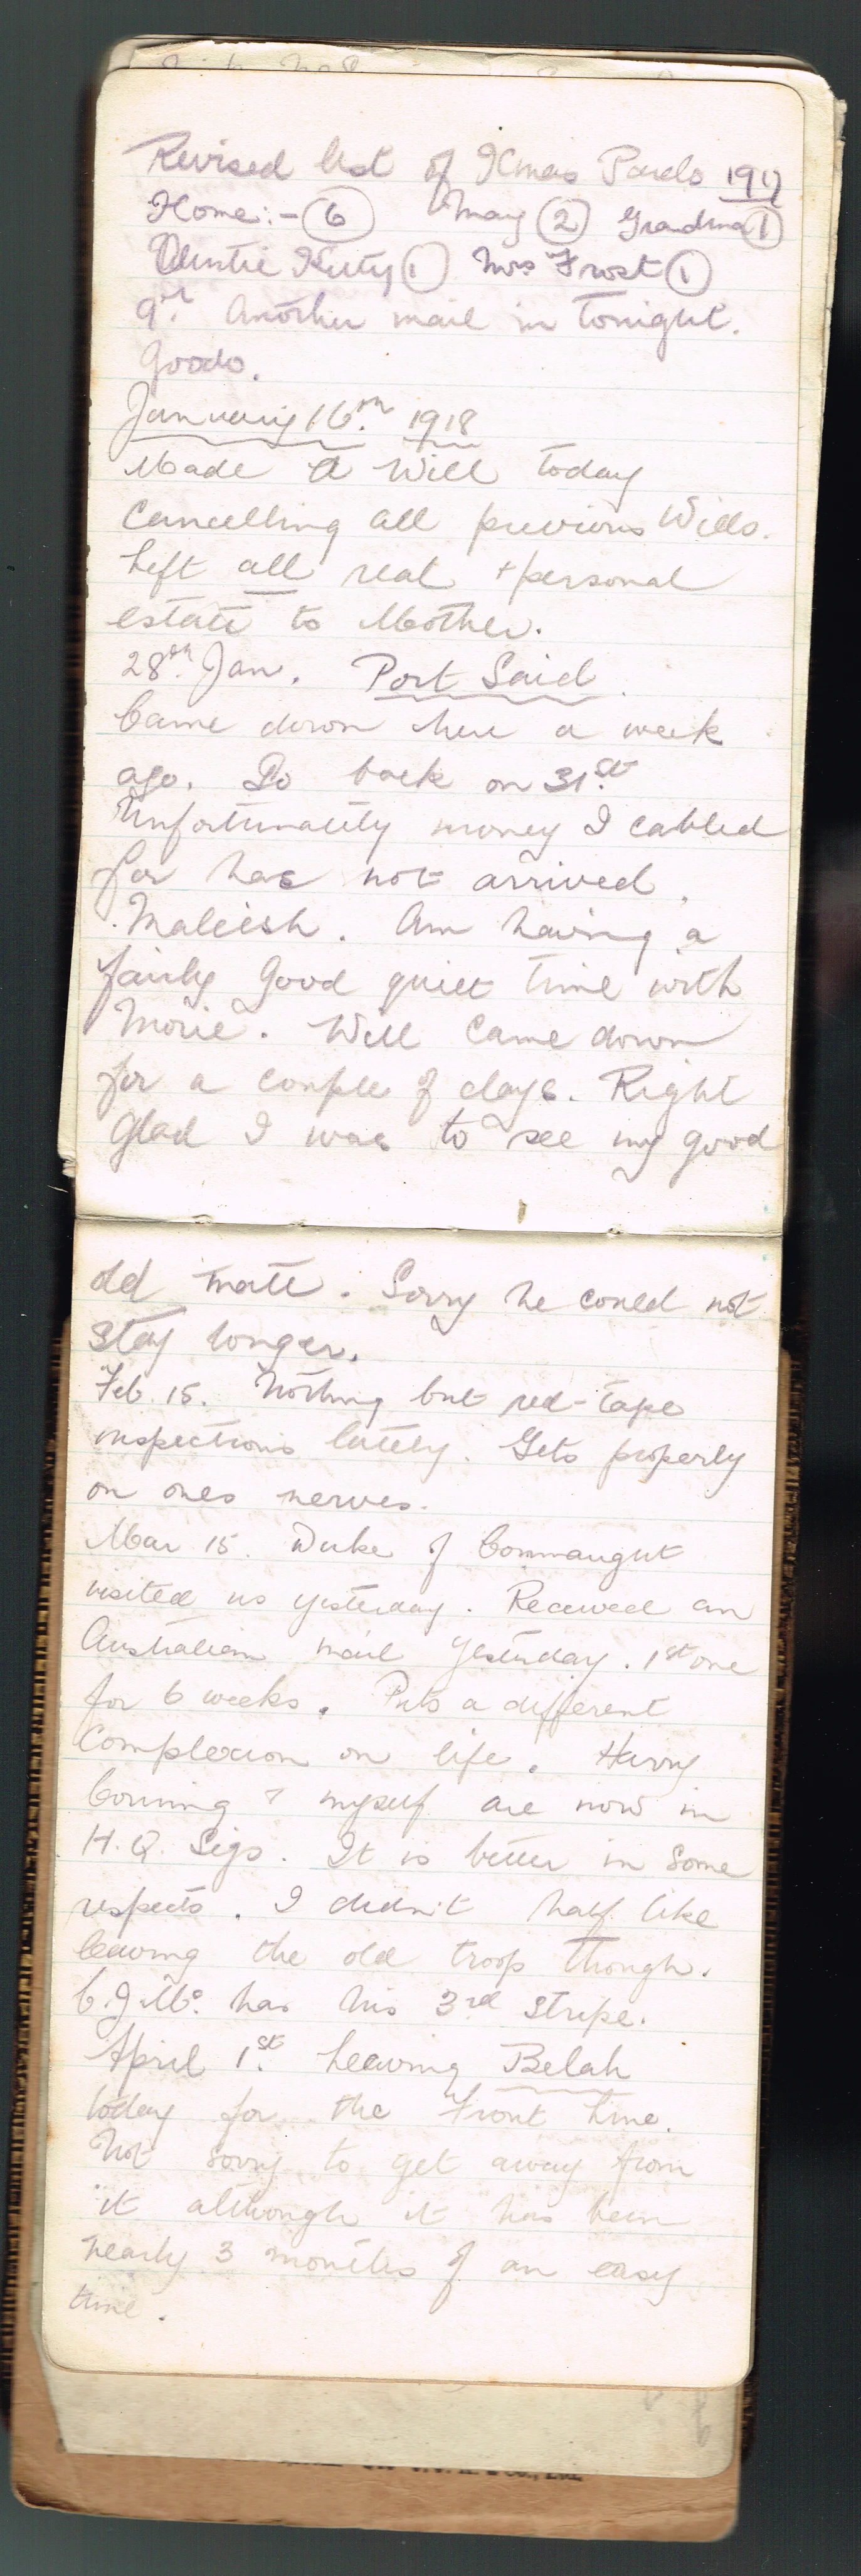 Revised list of Xmas Parcels 1917
Home:- 6 May 2 Grandma 1
Auntie Kitty 1 Mrs Frost 1
9th. Another mail in tonight.
Goodo.
January 16th. 1918
Made a Will today
cancelling all previous Wills.
Left all real + personal
estate to Mother.
28th. Jan. Port Said.
Came down here a week
ago. Go back on 31st.
Unfortunately money I cabled
for has not arrived.
Maleish. Am having a
fairly good quiet time with
. Will came down
for a couple of days. Right
glad I was to see my good
old mate. Sorry he could not
stay longer.
Feb. 15. Nothing but red-tape
inspections lately. Gets properly
on ones nerves.
Mar 15. Duke of Connaught
visited us yesterday. Received an
Australian mail yesterday. 1st one
for 6 weeks. Puts a different
complexion on life. Harry
& myself are now in
H.Q. Sigs. It is better in some
respects. I didn't half like
leaving the old troop though.
C.J.Mc. has his 3rd stripe.
April 1st. Leaving Belah
today for the Front Line.
Not sorry to get away from
it although it has been
nearly 3 months of an easy
time.